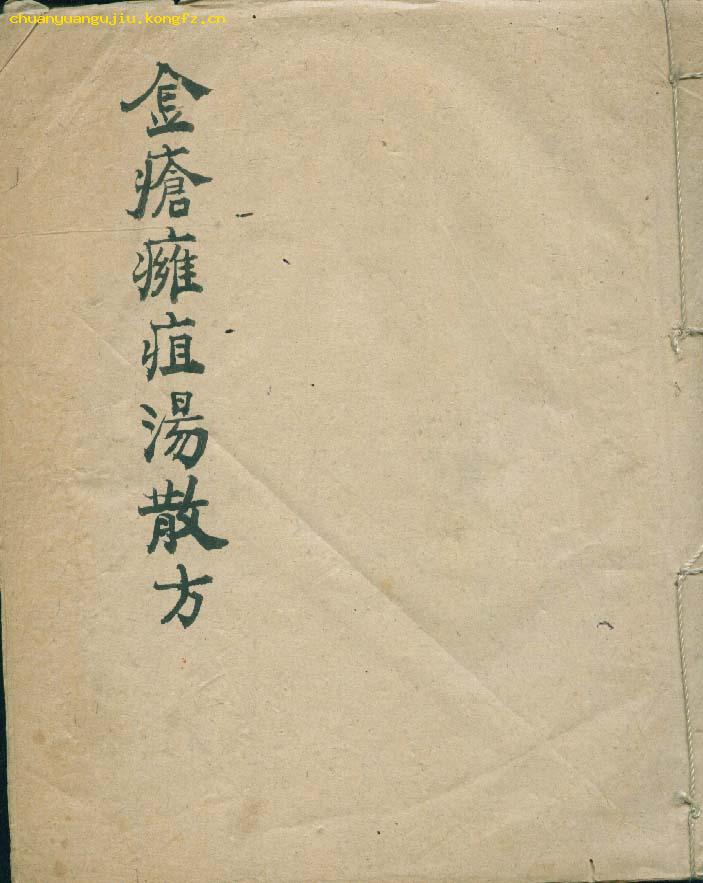 chuanyuangujiu.kongfz.cn
金瘡癰疽湯散方